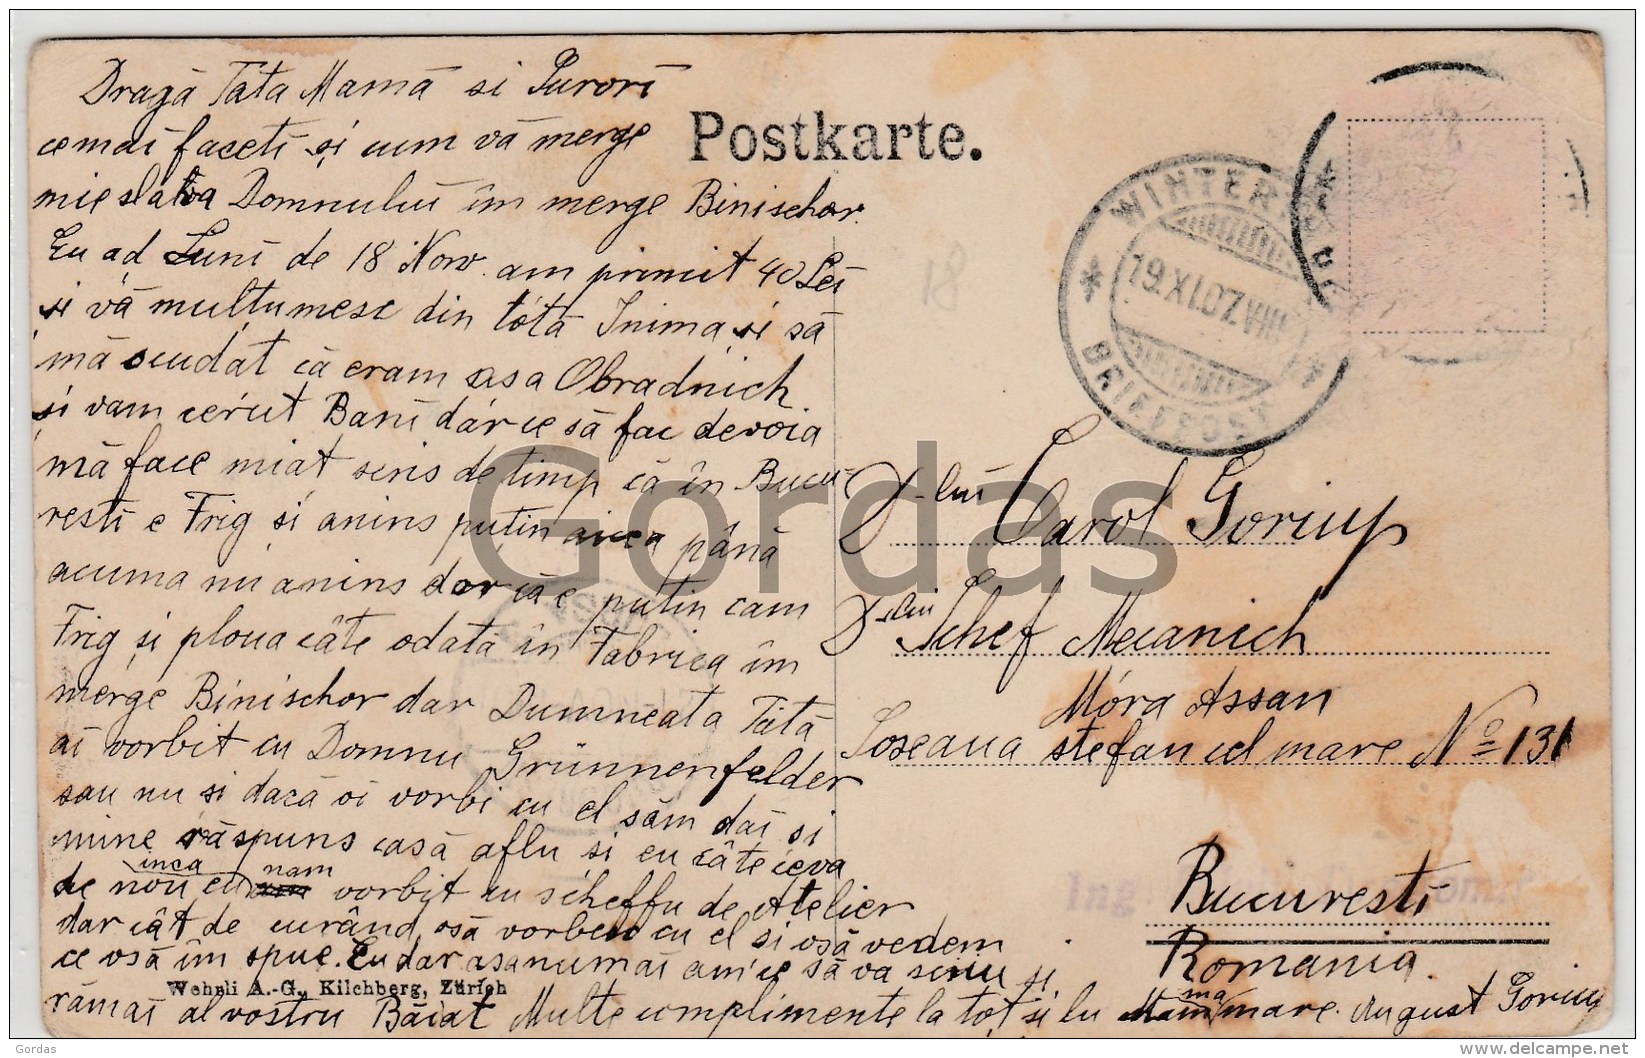 Dragă Tata Mamă si Surori
ce mai faceti și cum vă merge
mie slava Domnului îm merge Binischor.
Eu ad Luni de 18 Nov. am primit 40 Lei
si vă multumesc din tótă Inima, si să
mă scudat că eram asa Obradnich
și vam cerut Bani dár ce să fac devoia
mă face miat scris de timp că în Bucu-
resti e Frig și anins putin aicea până
acuma nu anins dar că e putin cam
Frig și ploua câte odată în Fabrica îm
merge Binischor dar Dumneata Tată
ai vorbit cu Domnu Grünnenfelder
sau nu si dacă oi vorbi cu el săm dai si
mine răspuns casă aflu si eu câte ceva
de nou eu inca nam vorbit cu scheffu de Atelier
dar cât de curând osă vorbesc cu el si osă vedem
ce osă îm spue. Eu dar asa numai am ce să va scriu si
rămai al vostru Băiat Multe complimente la tot si lu Mama mare. August Goriup
Postkarte.
WINTER
19.XI.07.VIII
BRIEF
81
D-lui Carol Goriup
D-lui Schef Mecanich
Móra Assan
Soseaua stefan cel mare No 131
Bucuresti
Romania.
Ing
Wehrli A.-G., Kilchberg, Zürich
Gordas
Gordas
delcampe.net